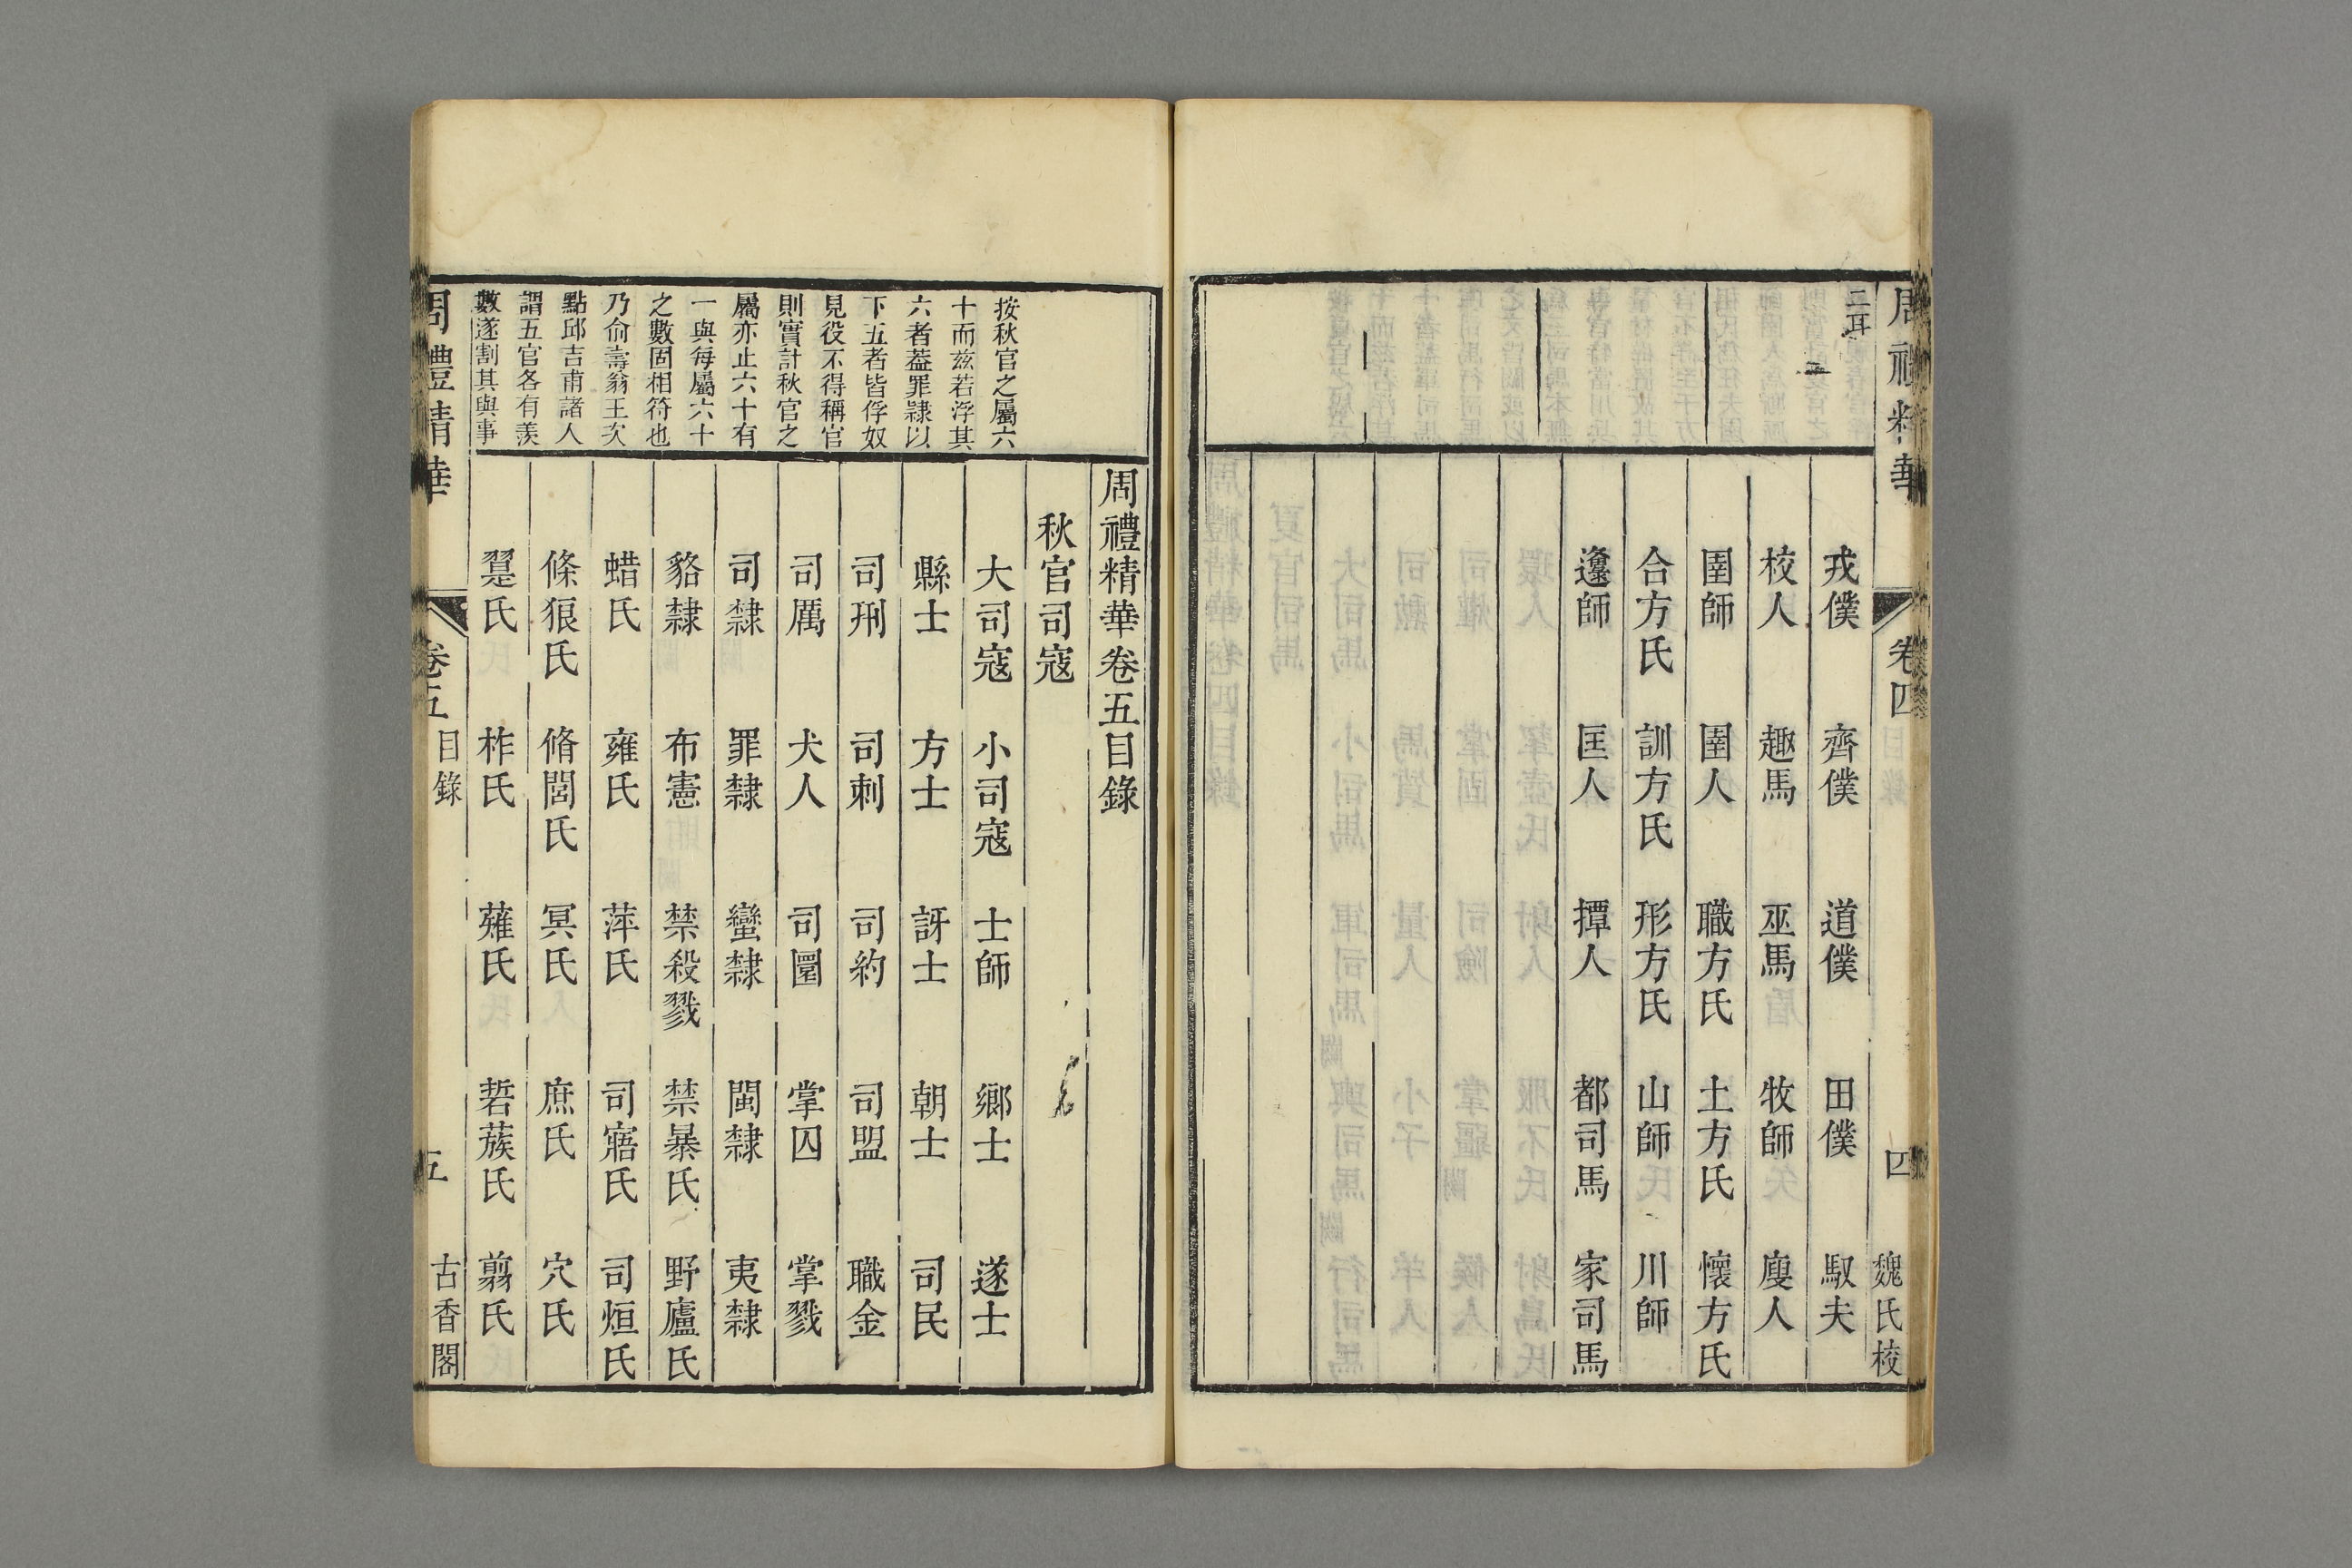 周禮精華
卷四
四
魏氏校
二耳
戎僕 齊僕 道僕 田僕 馭夫
校人 趣馬 巫馬 牧師 廋人
圉師 圉人 職方氏 土方氏 懷方氏
合方氏 訓方氏 形方氏 山師 川師
邍師 匡人 撢人 都司馬 家司馬
按秋官之屬六
十而兹若浮其
六者葢罪隷以
下五者皆俘奴
見役不得稱官
則實計秋官之
屬亦止六十有
一與每屬六十
之數固相符也
乃俞壽翁王次
點邱吉甫諸人
謂五官各有羨
數遂割其與事
周禮精華卷五目錄
秋官司寇
大司寇 小司寇 士師 鄉士 遂士
縣士 方士 訝士 朝士 司民
司刑 司刺 司約 司盟 職金
司厲 犬人 司圜 掌囚 掌戮
司隸 罪隸 蠻隸 閩隸 夷隸
貉隸 布憲 禁殺戮 禁暴氏 野廬氏
蜡氏 雍氏 萍氏 司寤氏 司烜氏
條狼氏 脩閭氏 冥氏 庶氏 穴氏
翨氏 柞氏 薙氏 硩蔟氏 翦氏
周禮精華
卷五
目錄
五
古香閣